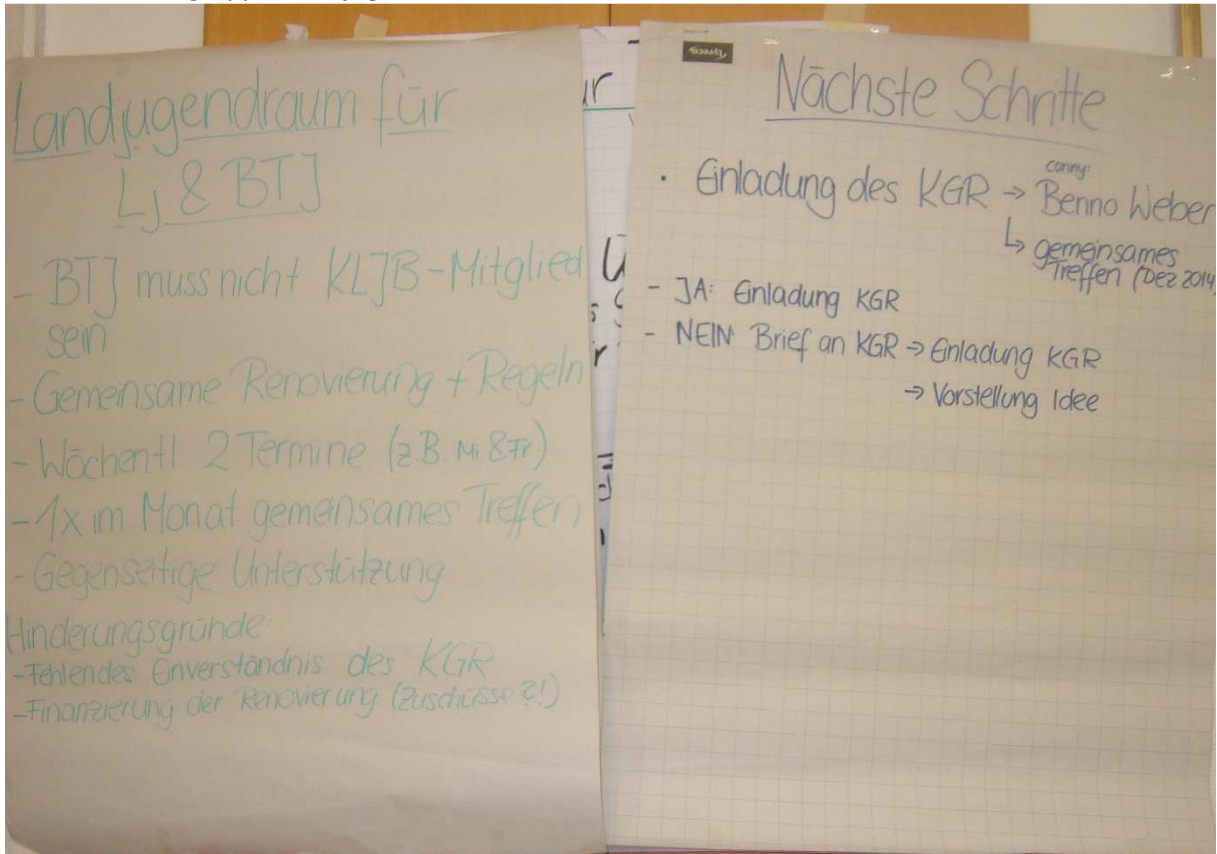 Landjugendraum für
Lj & BTJ
- BTJ muss nicht KLJB-Mitglied
sein
- Gemeinsame Renovierung + Regeln
- Wöchentl. 2 Termine (z.B. Mi & Fr)
- 1x im Monat gemeinsames Treffen
- Gegenseitige Unterstützung
Hinderungsgründe:
- Fehlendes Einverständnis des KGR
- Finanzierung der Renovierung (Zuschüsse ?!)
ur
Nächste Schritte
conny:
· Einladung des KGR → Benno Weber
↳ gemeinsames
Treffen (Dez 2014)
- JA: Einladung KGR
- NEIN: Brief an KGR → Einladung KGR
→ Vorstellung Idee